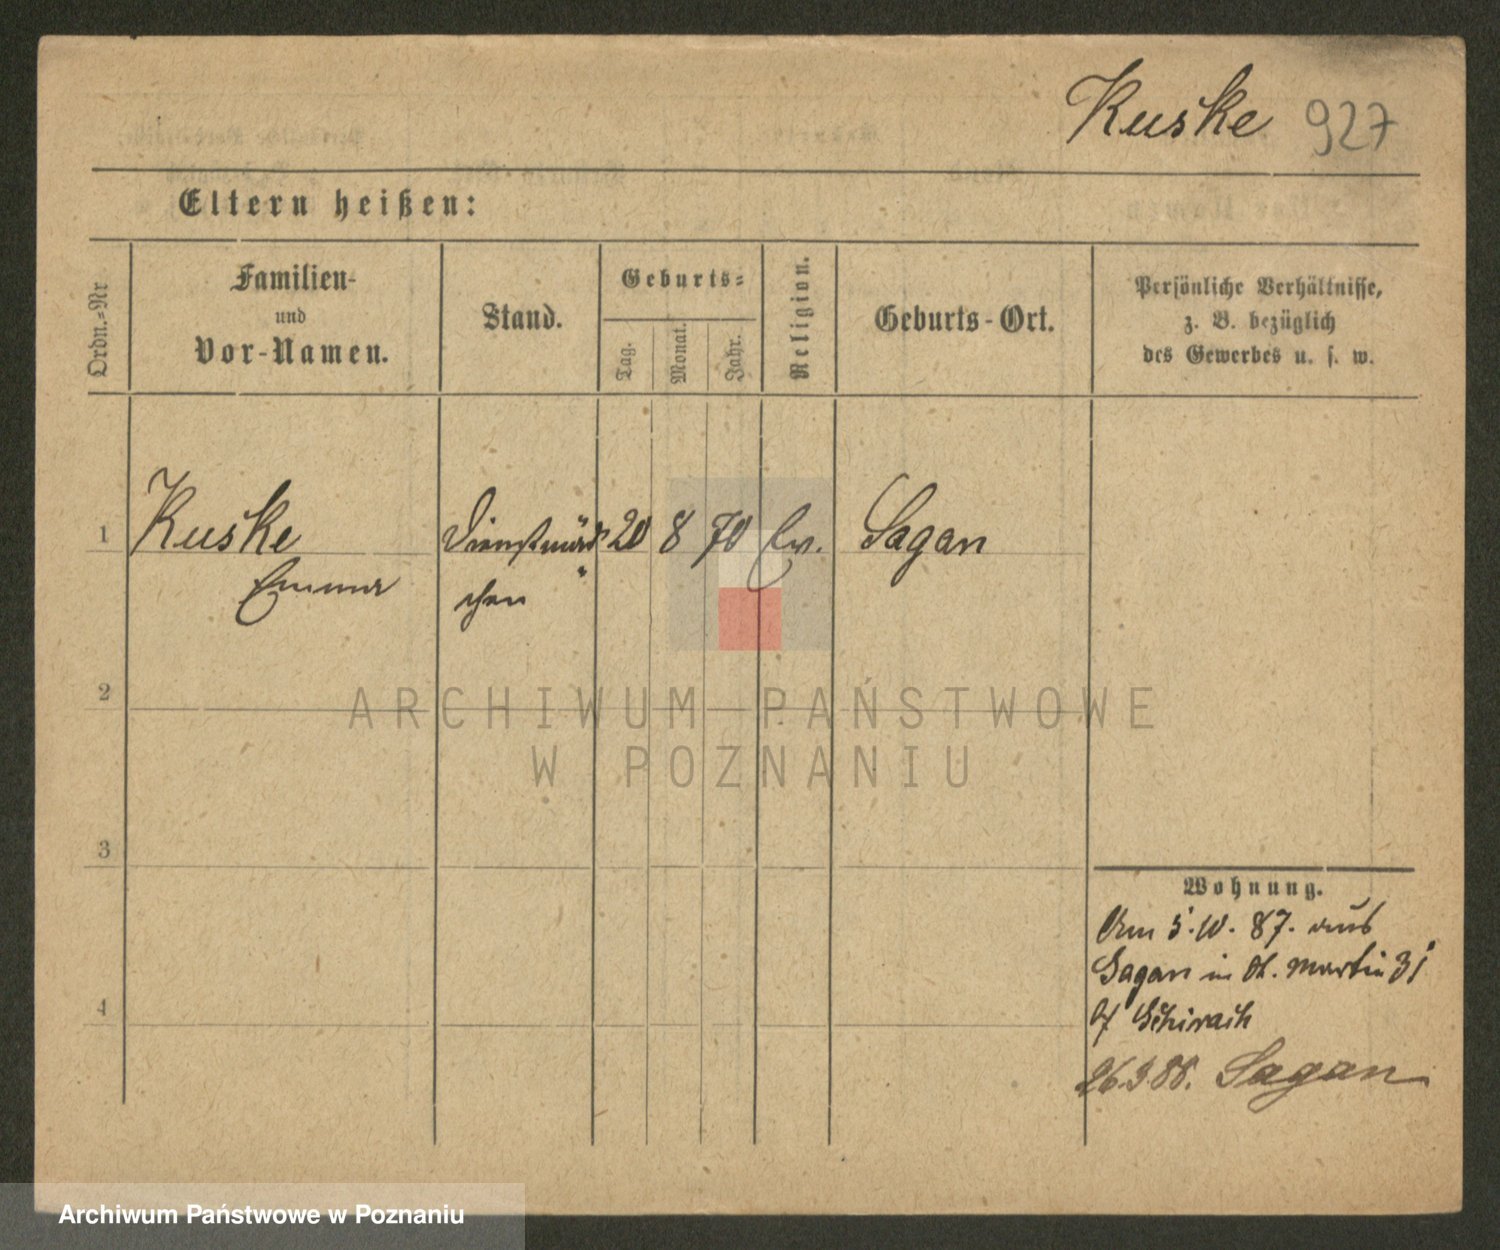 Kuske 927
Eltern heißen:
Ordn.=Nr.
Familien-
und
Vor-Namen.
Stand.
Geburts=
Tag.
Monat.
Jahr.
Religion.
Geburts-Ort.
Persönliche Verhältnisse,
z. B. bezüglich
des Gewerbes u. s. w.
1 Kuske Dienstmäd 20 8 70 Ev. Sagan
Emma chen
2
3
4
Wohnung.
Am 5.10.87. aus
Sagan in St. Martin 31
Schirach
26.3.88. Sagan
ARCHIWUM PAŃSTWOWE
W POZNANIU
Archiwum Państwowe w Poznaniu